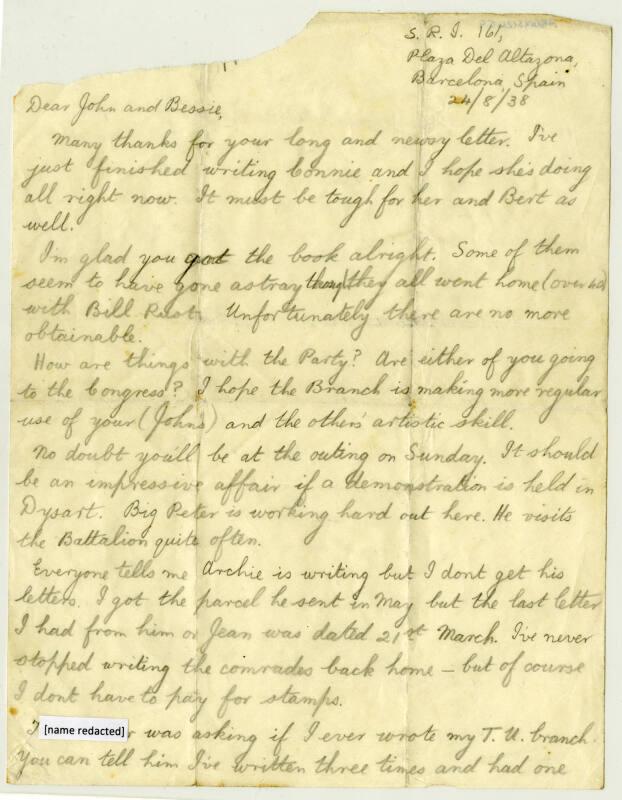 S. R. I. 161,
Plaza Del Altazona,
Barcelona, Spain
24/8/38
Dear John and Bessie,
Many thanks for your long and newsy letter. I've
just finished writing Connie and I hope she's doing
all right now. It must be tough for her and Bert as
well.
I'm glad you got the book alright. Some of them
seem to have gone astray though they all went home (over 40)
with Bill Rust. Unfortunately there are no more
obtainable.
How are things with the Party? Are either of you going
to the Congress? I hope the Branch is making more regular
use of your (Johns) and the others' artistic skill.
No doubt you'll be at the outing on Sunday. It should
be an impressive affair if a demonstration is held in
Dysart. Big Peter is working hard out here. He visits
the Battalion quite often.
Everyone tells me Archie is writing but I dont get his
letters. I got the parcel he sent in May but the last letter
I had from him or Jean was dated 21st March. I've never
stopped writing the comrades back home – but of course
I dont have to pay for stamps.
[name redacted] was asking if I ever wrote my T. U. branch.
You can tell him I've written three times and had one